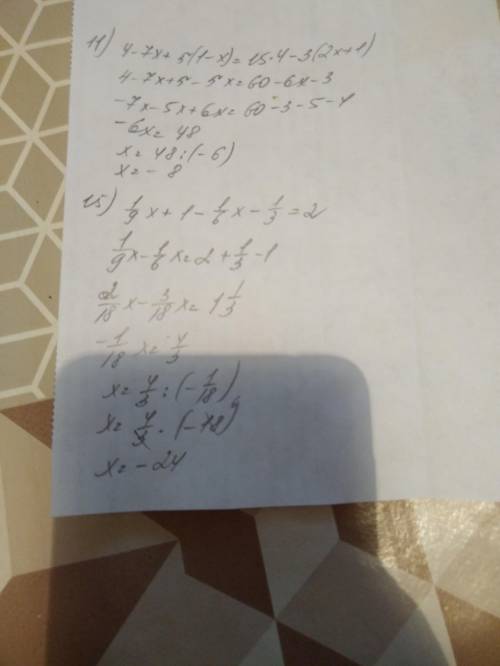 11) 4-7x+5(1-x)=15·4-3(2x+1)
4-7x+5-5x=60-6x-3
-7x-5x+6x=60-3-5-4
-6x=48
x=48:(-6)
x=-8
15) 1/9 x+1-1/6 x-1/3=2
1/9 x-1/6 x=2+1/3-1
2/18 x-3/18 x=1 1/3
-1/18 x=4/3
x=4/3:(-1/18)
x=4/3·(-18)
x=-24